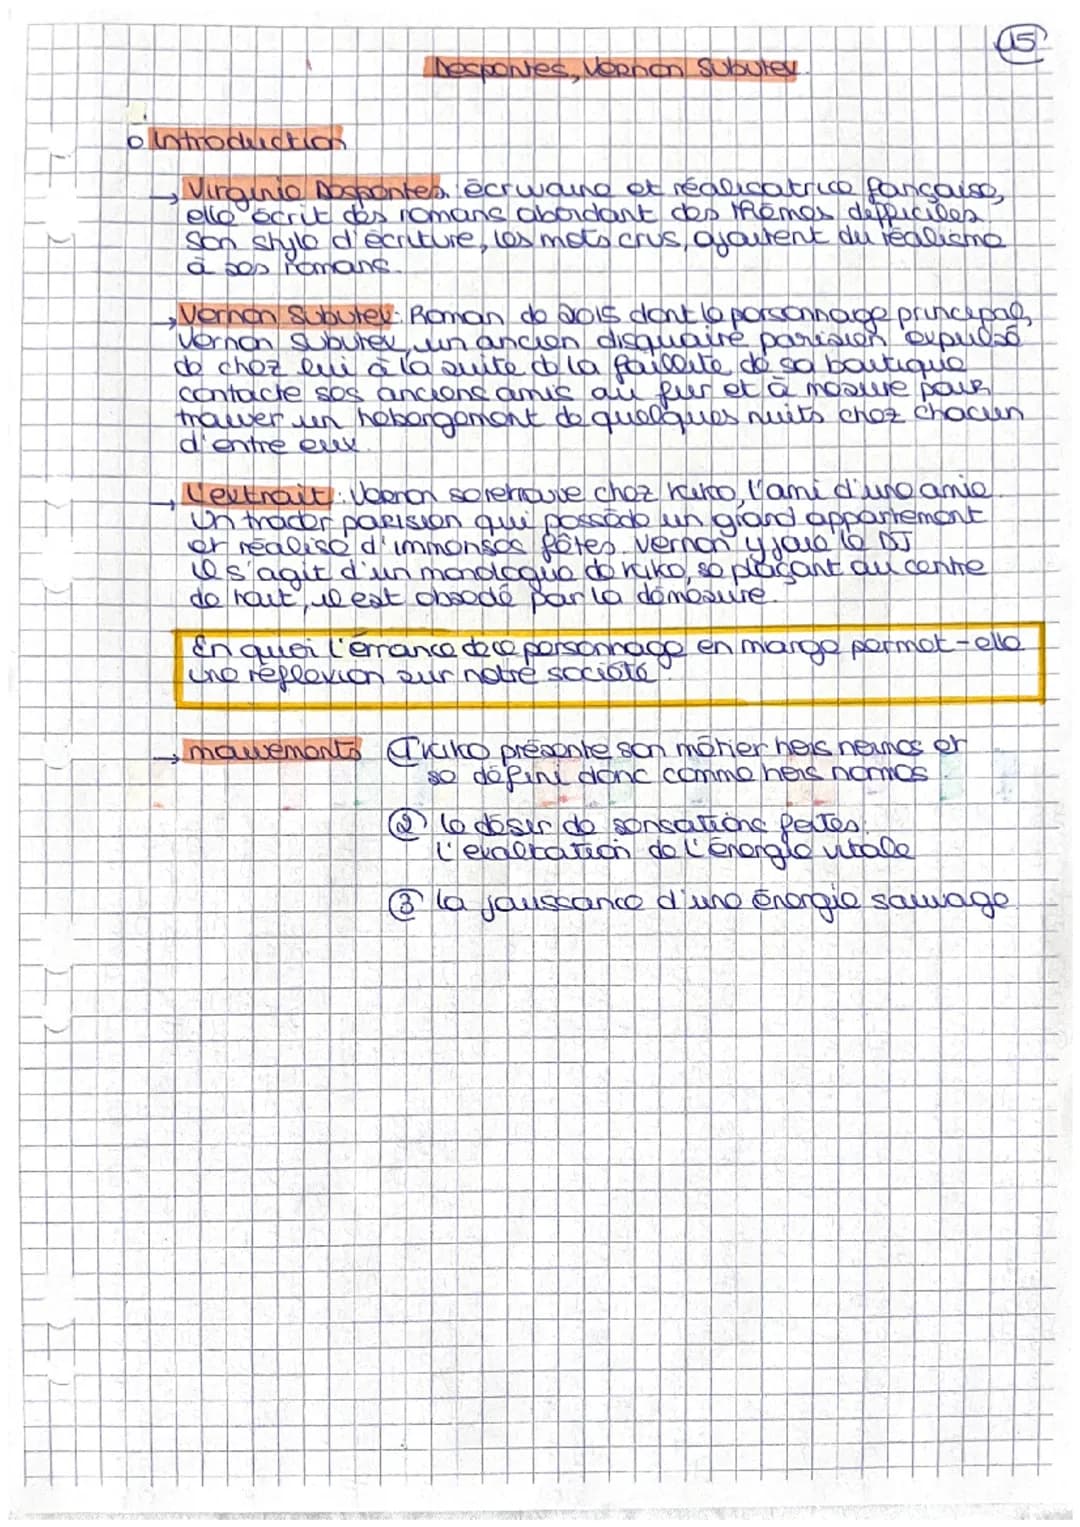 15
Despentes, Vernon Subutex.
o Introduction
→ Virginie Despentes : écrivaine et réalisatrice française,
elle écrit des romans abordant des thèmes difficiles.
Son style d'écriture, les mots crus, ajoutent du réalisme
à ses romans.
→ Vernon Subutex : Roman de 2015 dont le personnage principal,
Vernon Subutex, un ancien disquaire parisien expulsé
de chez lui à la suite de la faillite de sa boutique
contacte ses anciens amis au fur et à mesure pour
trouver un hébergement de quelques nuits chez chacun
d'entre eux.
→ L'extrait : Vernon se retrouve chez Kiko, l'ami d'une amie.
Un trader parisien qui possède un grand appartement
et réalise d'immenses fêtes. Vernon y joue le DJ
Il s'agit d'un monologue de Kiko, se plaçant au centre
de tout, il est obsédé par la démesure.
En quoi l'errance de ce personnage en marge permet-elle
une réflexion sur notre société ?
→ mouvements ① Kiko présente son métier hors normes et
se défini donc comme hors normes
② le désir de sensations fortes :
l'exaltation de l'énergie vitale
③ la jouissance d'une énergie sauvage.